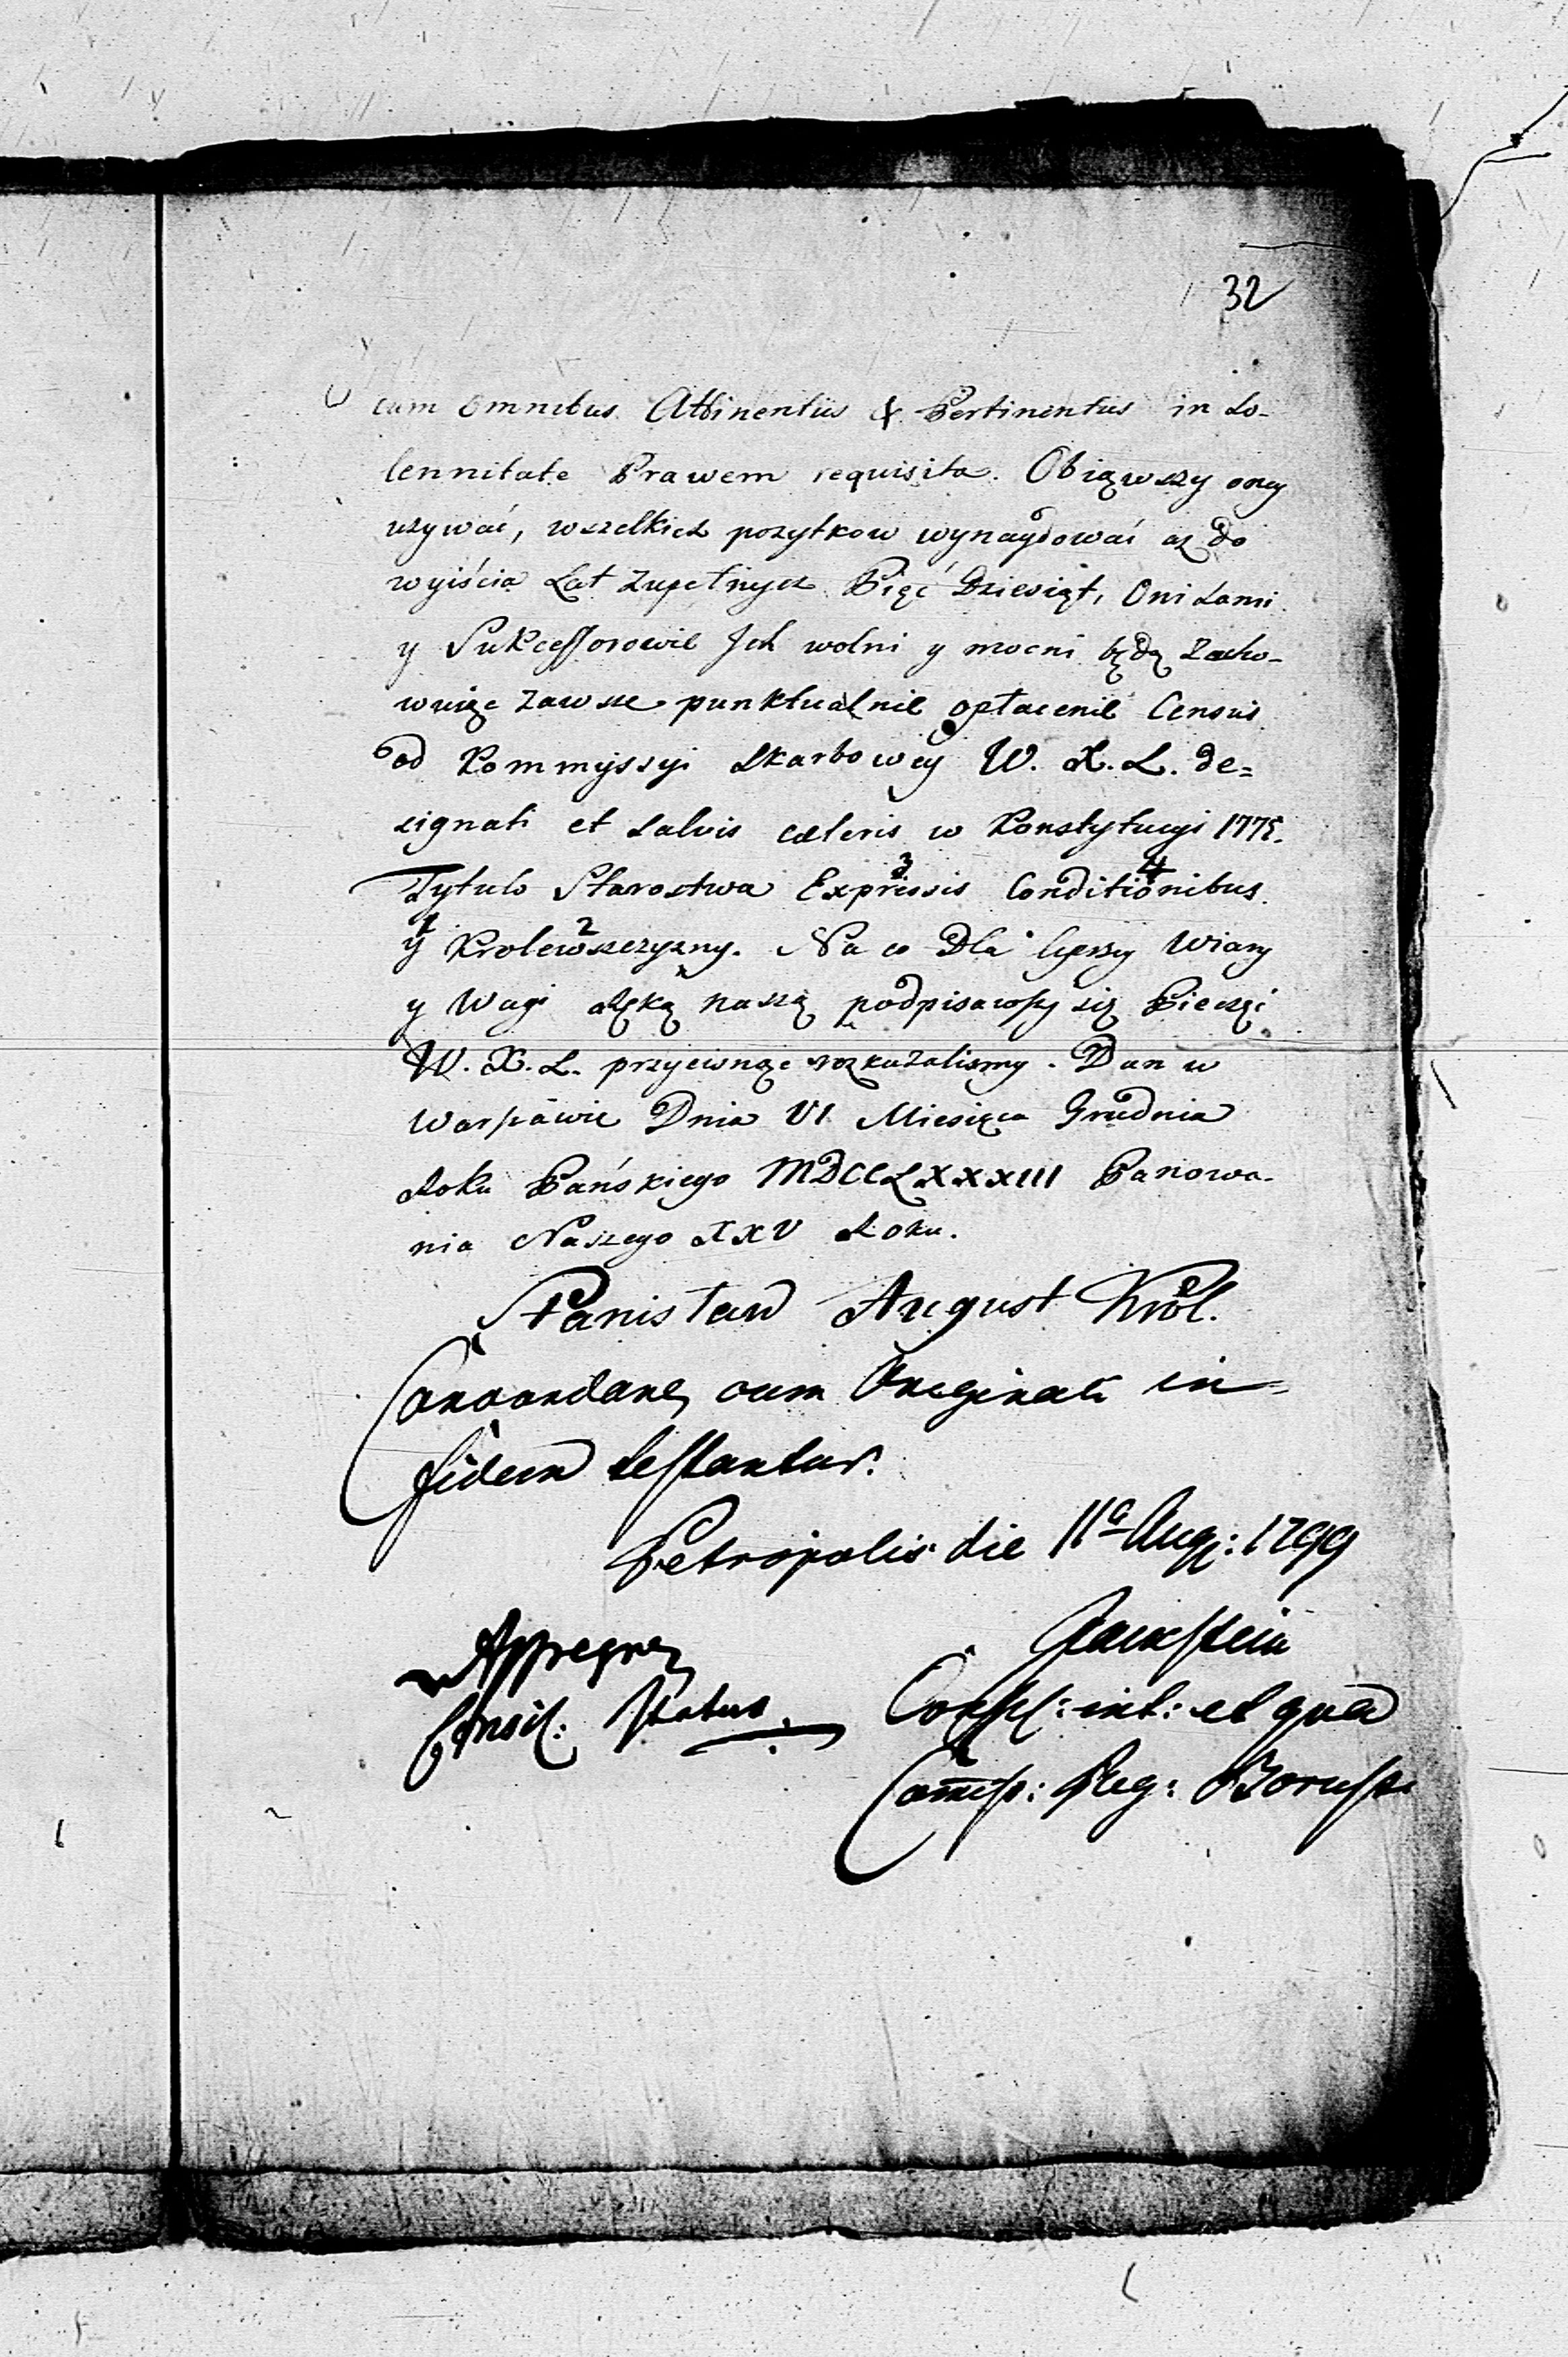 32
cum omnibus Attinentiis & Pertinentiis in So-
lennitate Prawem requisita. Obiąwszy oney
używać, wszelkich pożytkow wynaydować aż do
wyiścia Lat zupełnych Pięć Dziesiąt, Oni sami
y Sukcessorowie Ich wolni y mocni będą zacho-
wuiąc zawsze punktualnie opłacenie Census
od Kommyssyi Skarbowey W. X. L. de=
signati et salvis cæteris w Konstytucyi 1775.
Tytulo Starostwa Expressis 3 Conditionibus 4
y 1 Krolewszczyzny 2. Na co Dla lepszey Wiary
y Wagi Ręką naszą podpisawszy się Pieczęć
W. X. L. przycisnąć rozkazalismy. Dan w
Warszawie Dnia VI Miesiąca Grudnia
Roku Pańskiego MDCCLXXXIII Panowa-
nia Naszego XXV Roku.
Stanisław August Krol.
Concordare cum Originali in=
fidem testantur.
Petropolis die 11a Aug: 1799
Consil: Status.
int: et qua
Commiss: Reg: Boruss: